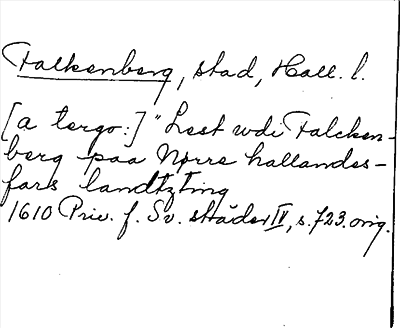 Falkenberg, stad, Hall. l.
[a tergo:] "Lest wdi Falcken-
berg paa Nørre hallandes-
fars landtzting
1610 Priv. f. Sv. städer IV, s. 723. orig.